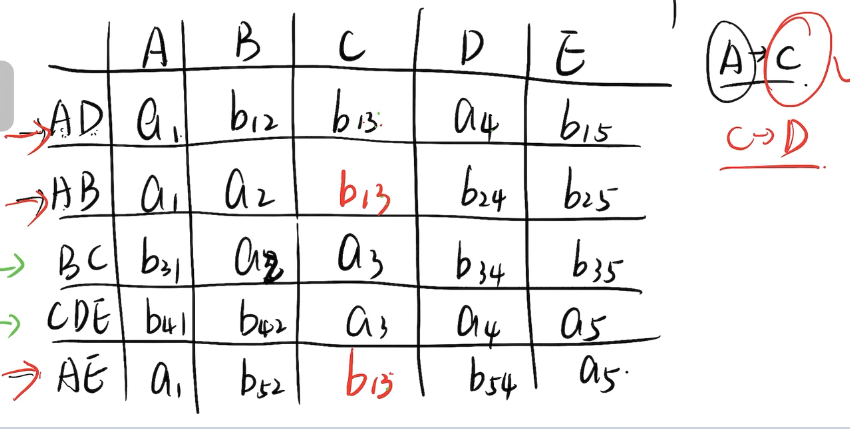 A B C D E
AD a1 b12 b13 a4 b15
AB a1 a2 b13 b24 b25
BC b31 a2 a3 b34 b35
CDE b41 b42 a3 a4 a5
AE a1 b52 b13 b54 a5
A→C
C→D